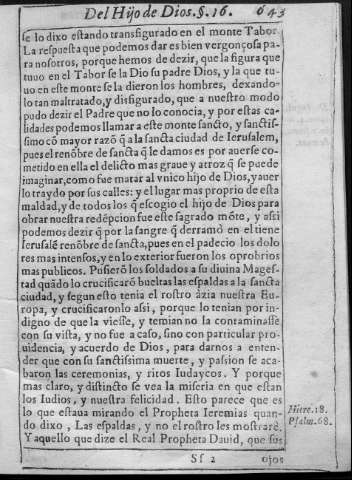 Del Hijo de Dios. §. 16. 643
se lo dixo estando transfigurado en el monte Tabor.
La respuesta que podemos dar es bien vergonçosa pa-
ra nosotros, porque hemos de dezir, que la figura que
tuuo en el Tabor se la Dio su padre Dios, y la que tu-
uo en este monte se la dieron los hombres, dexando-
lo tan maltratado, y disfigurado, que a nuestro modo
pudo dezir el Padre que no lo conocia, y por estas ca-
lidades podemos llamar a este monte sancto, y sanctis-
simo cõ mayor razõ q̃ a la sancta ciudad de Ierusalem,
pues el renõbre de sancta q̃ le damos es por auerse co-
metido en ella el delicto mas graue y atroz q̃ se puede
imaginar, como fue matar al vnico hijo de Dios, y auer
lo traydo por sus calles: y el lugar mas proprio de esta
maldad, y de todos los q̃ escogio el hijo de Dios para
obrar nuestra redẽpcion fue este sagrado mõte, y assi
podemos dezir q̃ por la sangre q̃ derramó en el tiene
Ierusalẽ renõbre de sancta, pues en el padecio los dolo
res mas intensos, y en lo exterior fueron los oprobrios
mas publicos. Pusierõ los soldados a su diuina Mages-
tad quãdo lo crucificarõ bueltas las espaldas a la sancta
ciudad, y segun esto tenia el rostro àzia nuestra Eu-
ropa, y crucificaronlo assi, porque lo tenian por in-
digno de que la viesse, y temian no la contaminasse
con su vista, y no fue a caso, sino con particular pro-
uidencia, y acuerdo de Dios, para darnos a enten-
der que con su sanctissima muerte, y passion se aca-
baron las ceremonias, y ritos Iudaycos. Y porque
mas claro, y distincto se vea la miseria en que estan
los Iudios, y nuestra felicidad. Esto parece que es
lo que estaua mirando el Propheta Ieremias quan-
do dixo, Las espaldas, y no el rostro les mostrarè.
Hiere. 18.
Psalm. 68.
Y aquello que dize el Real Propheta Dauid, que sus
Sſ 2 ojos